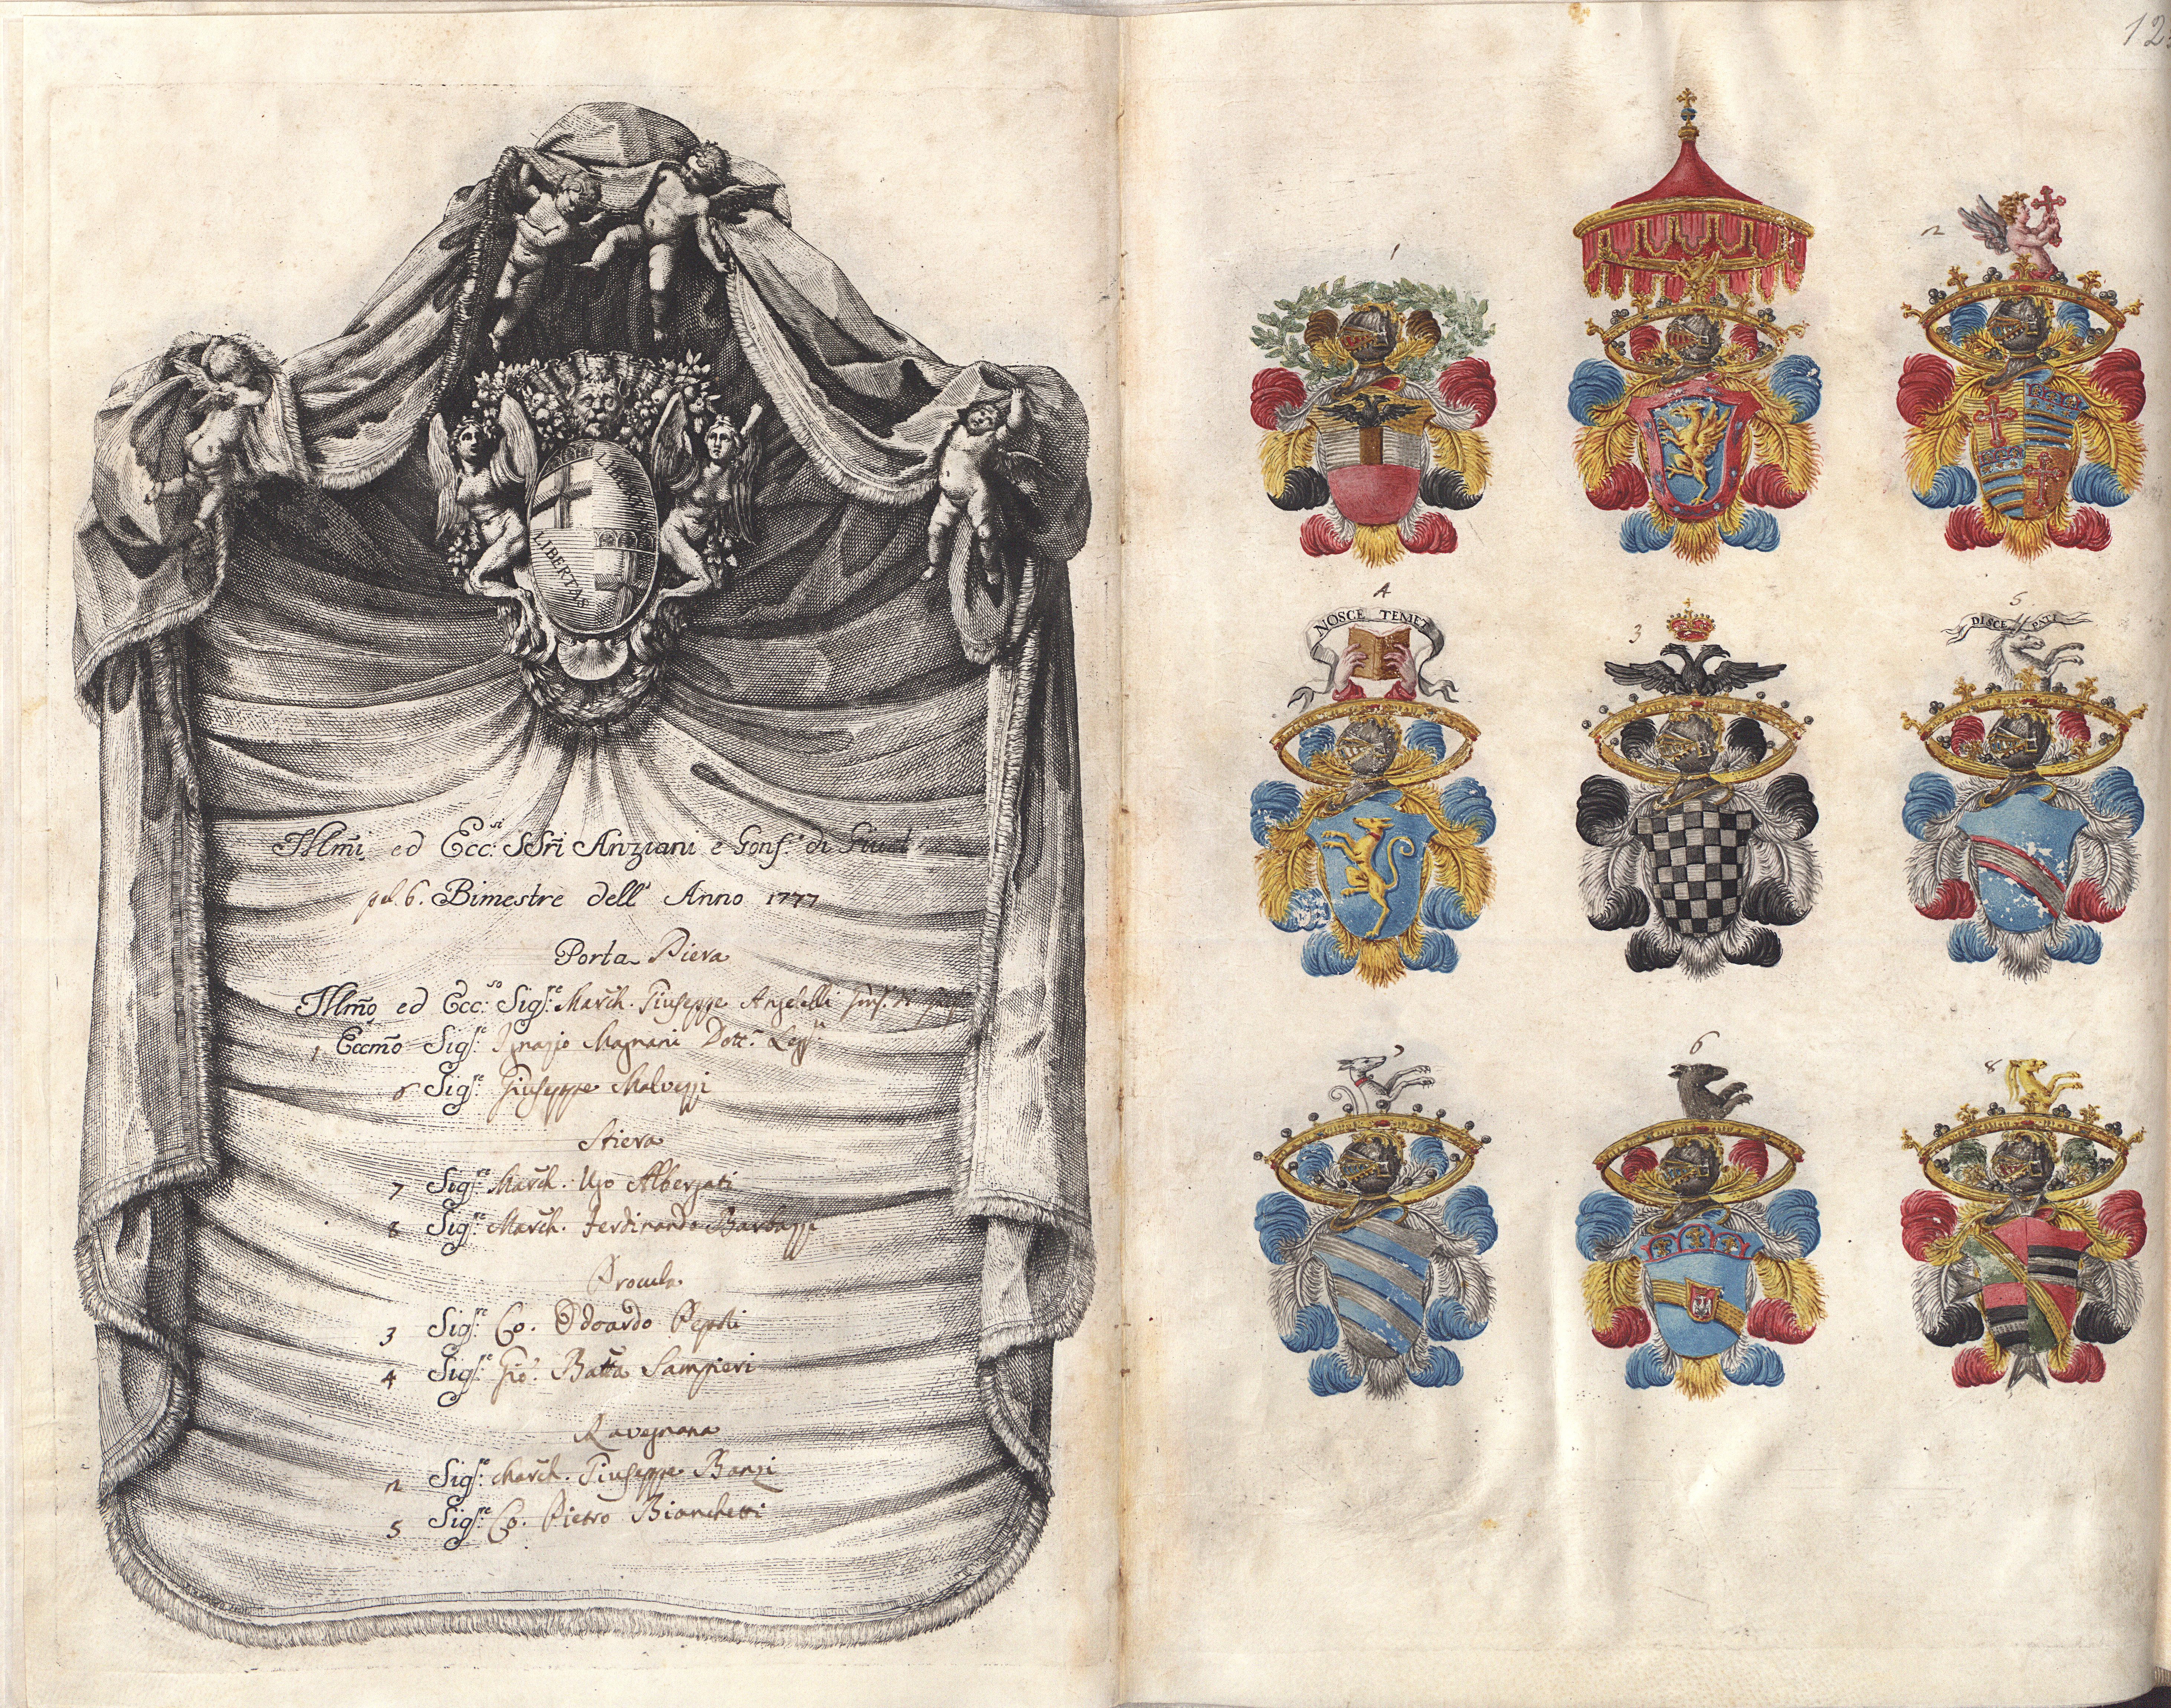 LIBERTAS
LIBERTAS
Illmi ed Ecc.si SSri Anziani e Gonf.e di Giust
pel. 6. Bimestre dell' Anno 1777
Porta Piera
Illmo ed Ecc.so Sig.re March. Giuseppe Angelelli Gonf. di
1 Eccmo Sig.re Ignazio Magnani Dott. Legg.
6 Sig.re Giuseppe Malvezzi
Stiera
7 Sig.re March. Ugo Albergati
8 Sig.re March. Ferdinando Barbazzi
Procula
3 Sig.re Co. Odoardo Pepoli
4 Sig.re Gio. Batta Sampieri
Ravegnana
2 Sig.re March. Giuseppe Banzi
5 Sig.re Co. Pietro Bianchetti
12
1
2
4
NOSCE TEMET
3
5
DISCE PATI
7
6
8